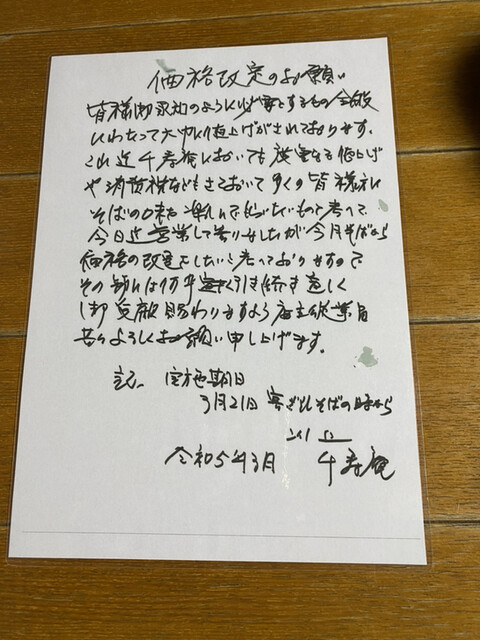 価格改定のお願い
皆様御承知のように必要とするもの全般
にわたって大巾に値上げがされております。
これ迄千寿庵においても度重なる値上げ
や消費税などもさておいて多くの皆様に
そばの味を楽しんで頂きたいものと考へて
今日迄営業して参りましたが今月そばから
価格の改定をしたいと考へておりますので
その節には何卒
引き続き宜しく
御贔屓賜わりますよう店主従業員
共々よろしくお願い申し上げます。
記、実施期日
3月21日 寒ざらしそばの時から
以上
令和5年3月 千寿庵